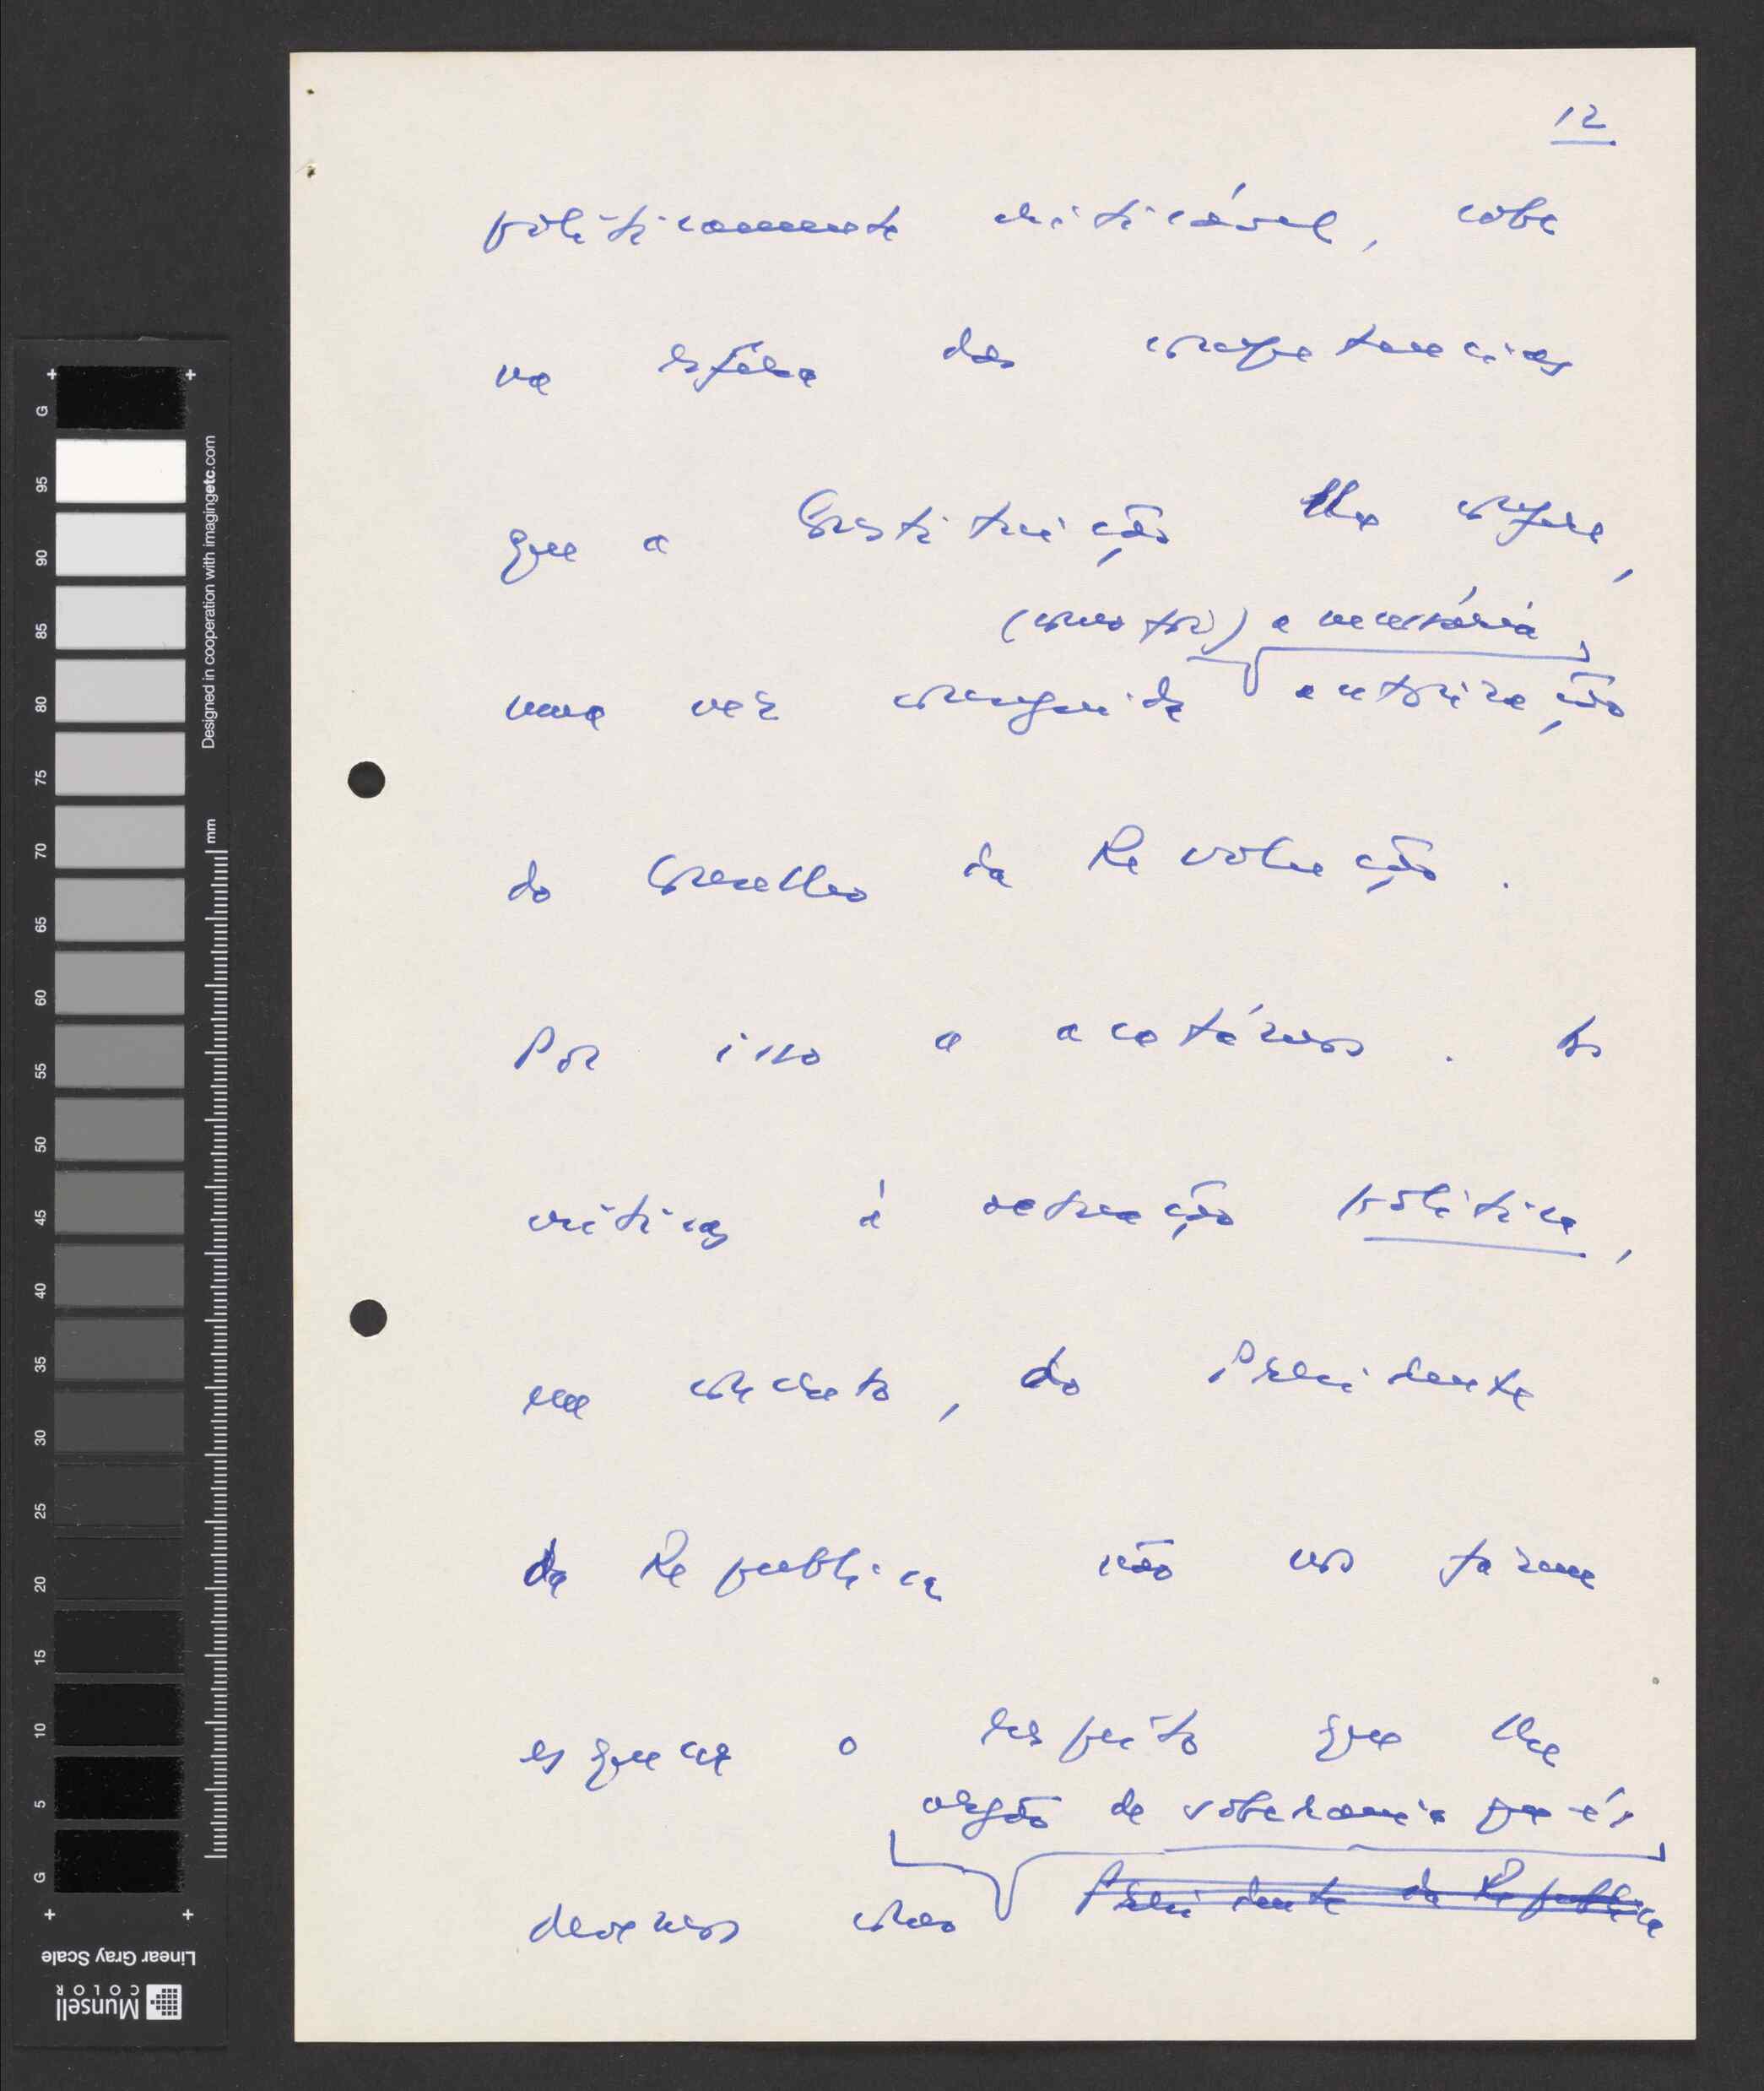 12
politicamente criticável, cabe
na esfera das competencias
que a Constituição lhe confere,
(como foi) a necessária
uma vez conseguida autorização
do Conselho da Revolução.
Por isso a acatámos. As
criticas à actuação politica,
em concreto, do Presidente
da Republica não nos fazem
esquecer o respeito que lhe
orgão de soberania que é,
devemos como Presidente da Republica
G
95
90
85
80
75
70
65
60
55
50
45
40
35
30
25
20
15
10
5
G
Designed in cooperation with imagingetc.com
mm
Linear Gray Scale
Munsell
COLOR